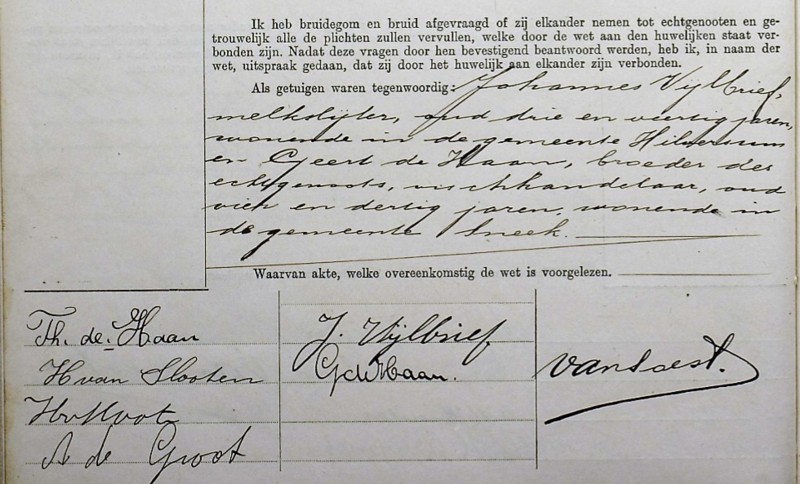 Ik heb bruidegom en bruid afgevraagd of zij elkander nemen tot echtgenooten en ge-
trouwelijk alle de plichten zullen vervullen, welke door de wet aan den huwelijken staat ver-
bonden zijn. Nadat deze vragen door hen bevestigend beantwoord werden, heb ik, in naam der
wet, uitspraak gedaan, dat zij door het huwelijk aan elkander zijn verbonden.
Als getuigen waren tegenwoordig: Johannes Vijlbrief,
melkslijter, oud drie en veertig jaren,
wonende in de gemeente Hilversum
en Geert de Haan, broeder des
echtgenoots, vischhandelaar, oud
vier en dertig jaren, wonende in
de gemeente Sneek.
Waarvan akte, welke overeenkomstig de wet is voorgelezen.
Th. de Haan
H van Slooten
A de Groot
J. Vijlbrief
G de Haan.
van Soest.